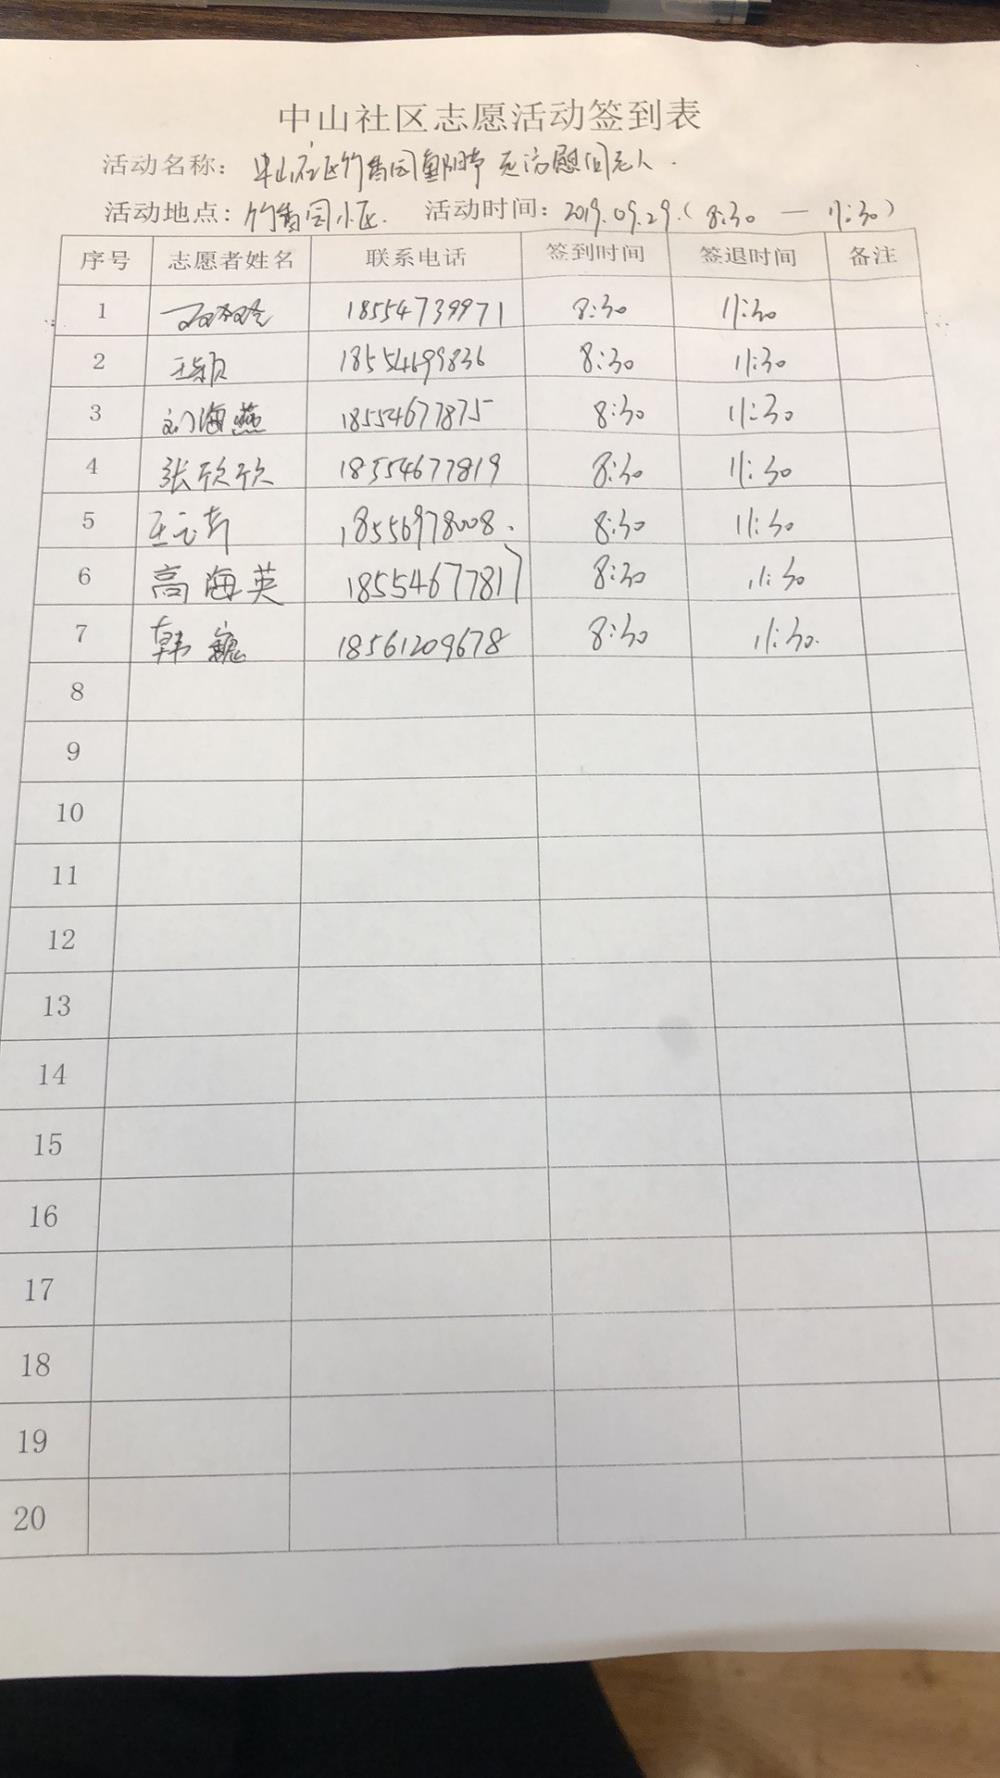 中山社区志愿活动签到表
活动名称: 中山社区竹香园重阳节走访慰问老人.
活动地点: 竹香园小区. 活动时间: 2019.09.29.(8:30 — 11:30)
序号 志愿者姓名 联系电话 签到时间 签退时间 备注
1 18554739971 8:30 11:30
2 王颖 18554699836 8:30 11:30
3 刘海燕 18554677875 8:30 11:30
4 张欣欣 18554677819 8:30 11:30
5 18556978008. 8:30 11:30
6 高海英 18554677817 8:30 11:30
7 韩巍 18561209678 8:30 11:30.
8
9
10
11
12
13
14
15
16
17
18
19
20